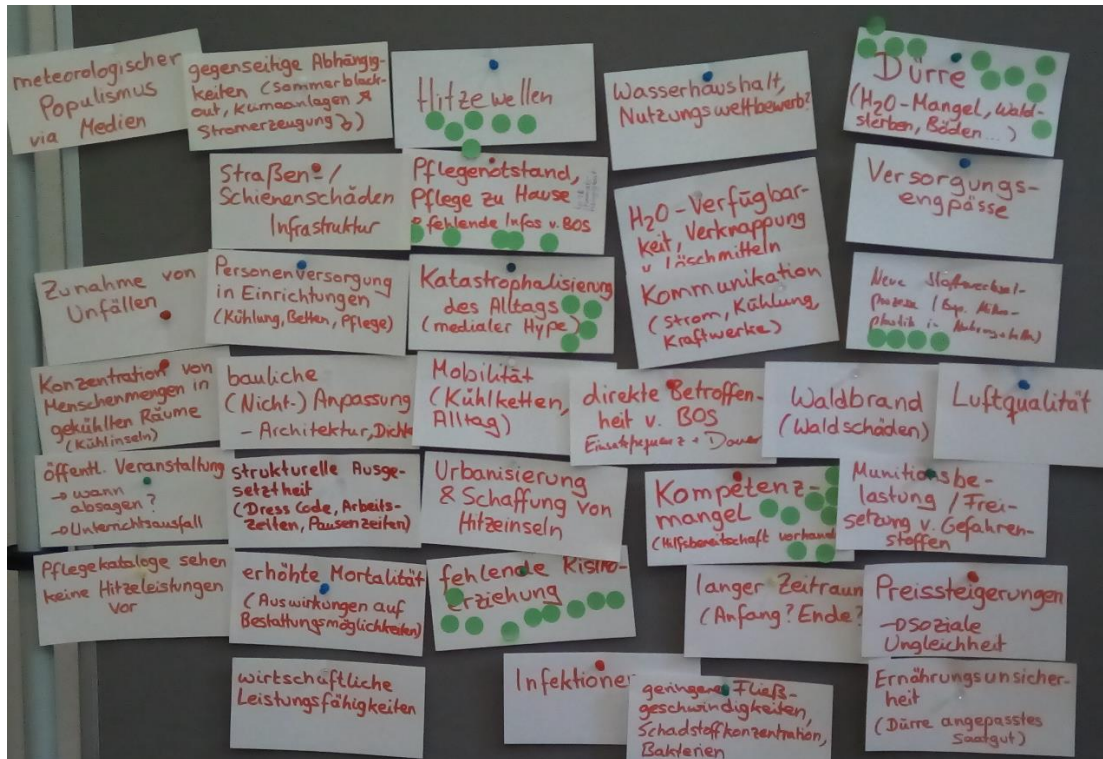 meteorologischer
Populismus
via Medien
gegenseitige Abhängig-
keiten (Sommerblack-
out, Klimaanlagen ↗
Stromerzeugung ↘)
Hitzewellen
Wasserhaushalt,
Nutzungswettbewerb?
Dürre
(H₂O-Mangel, Wald-
sterben, Böden...)
Straßen-/
Schienenschäden
Infrastruktur
Pflegenotstand,
Pflege zu Hause
fehlende Infos v. BOS
H₂O-Verfügbar-
keit, Verknappung
v. Löschmitteln
Kommunikation
(Strom, Kühlung,
Kraftwerke)
Versorgungs-
engpässe
Zunahme von
Unfällen
Personenversorgung
in Einrichtungen
(Kühlung, Betten, Pflege)
Katastrophalisierung
des Alltags
(medialer Hype)
Neue Stoffwechsel-
prozesse (Bsp. Mikro-
plastik in
Konzentration von
Menschenmengen in
gekühlten Räume
(Kühlinseln)
bauliche
(Nicht-) Anpassung
- Architektur, Dichte
Mobilität
(Kühlketten,
Alltag)
direkte Betroffen-
heit v. BOS
Einsatzfrequenz + Dauer
Waldbrand
(Waldschäden)
Luftqualität
öffentl. Veranstaltung
→ wann
absagen?
→ Unterrichtsausfall
strukturelle Ausge-
setztheit
(Dress Code, Arbeits-
zeiten, Pausenzeiten)
Urbanisierung
& Schaffung von
Hitzeinseln
Kompetenz-
mangel
(Hilfsbereitschaft vorhanden
Munitionsbe-
lastung / Frei-
setzung v. Gefahren-
stoffen
Pflegekataloge sehen
keine Hitzeleistungen
vor
erhöhte Mortalität
(Auswirkungen auf
Bestattungsmöglichkeiten)
fehlende Risiko-
erziehung
langer Zeitraum
(Anfang? Ende?
Preissteigerungen
→ soziale
Ungleichheit
wirtschaftliche
Leistungsfähigkeiten
Infektionen
geringere Fließ-
geschwindigkeiten,
Schadstoffkonzentration,
Bakterien
Ernährungsunsicher-
heit
(Dürre angepasstes
Saatgut)